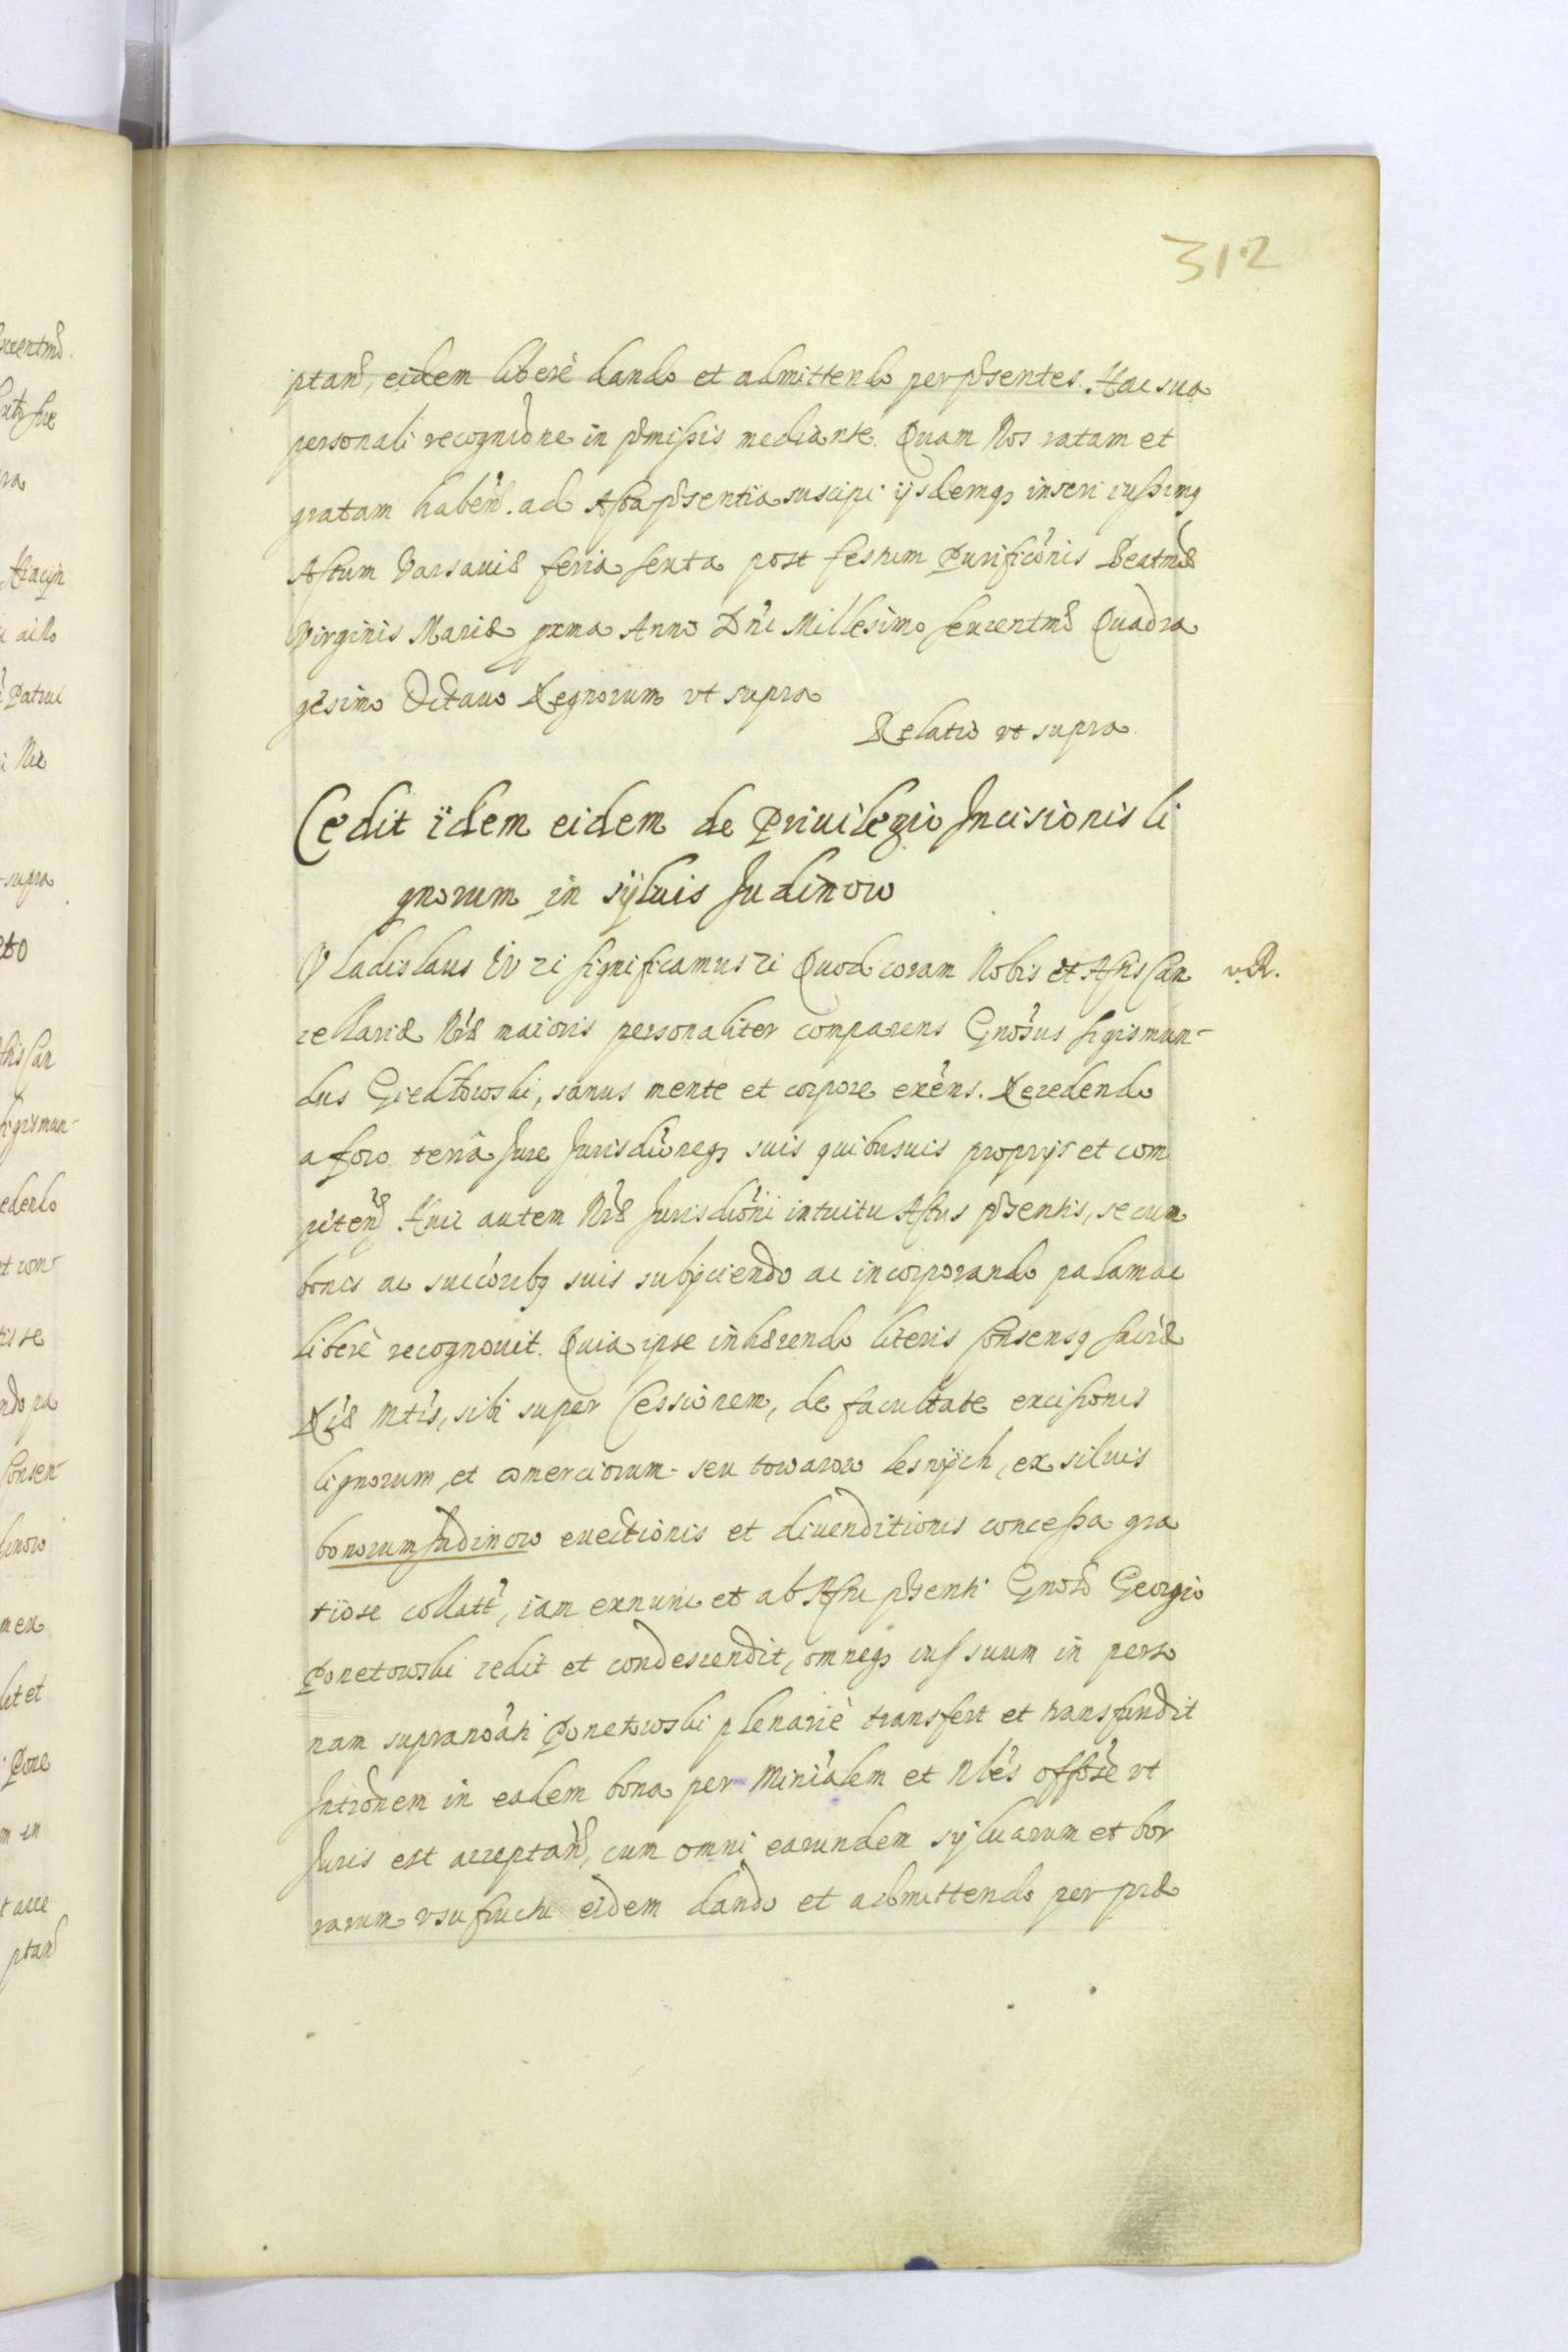 312
ptand, eidem liberè dando et admittendo per pñsentes. Hac sua
personali recognĩone in p̃missis mediante. Quam Nos ratam et
gratam habeñ. ad Acta pñsentia suscipi ijsdemqȝ inseri iussimꝰ
Actum Varsauiæ feria sexta post festum Purificãonis Beatmæ
Virginis Mariæ pxma Anno Dñi Millesimo sexcentmo Quadra
gesimo Octauo Regnorum vt supra
Relatio vt supra
Cedit idem eidem de Priuilegio Incisionis li
gnorum in syluis Judinow
Vladislaus IV zc significamus zc Quod coram Nobis et Actis Can
v.R.
cellariæ Nr̃æ maioris personaliter comparens Gnõsus Sigismun-
dus Giedltowski, sanus mente et corpore exẽns. Recedendo
a foro terrã Jure Jurisdiõneqȝ suis quibusuis proprijs et com
peteñ Huic autem Nr̃æ Jurisdiõni intuitu Actus pñsentis, se cum
bonis ac succõribꝰ suis subijciendo ac incorporando palam ac
liberè recognouit. Quia ipse inhærendo literis Consensꝰ Sacræ
Rĩæ Mtis, sibi super Cessionem, de facultate excisionis
lignorum, et comerciorum seu towarow lesnych, ex siluis
bonorum Judinow euectionis et diuenditionis concessa gra
tiose collatĩ, iam exnunc et ab Actu pñsenti Gnoso Georgio
Ponetowski cedit et condescendit, omneqȝ ius suum in perso
nam supranoãti Ponetowski plenariè transfert et transfundit
Intromem in eadem bona per Miniãlem et Nles offõse vt
Juris est acceptañ, cum omni earundem syluarum et bor
rarum vsufructu eidem dando et admittendo per præ